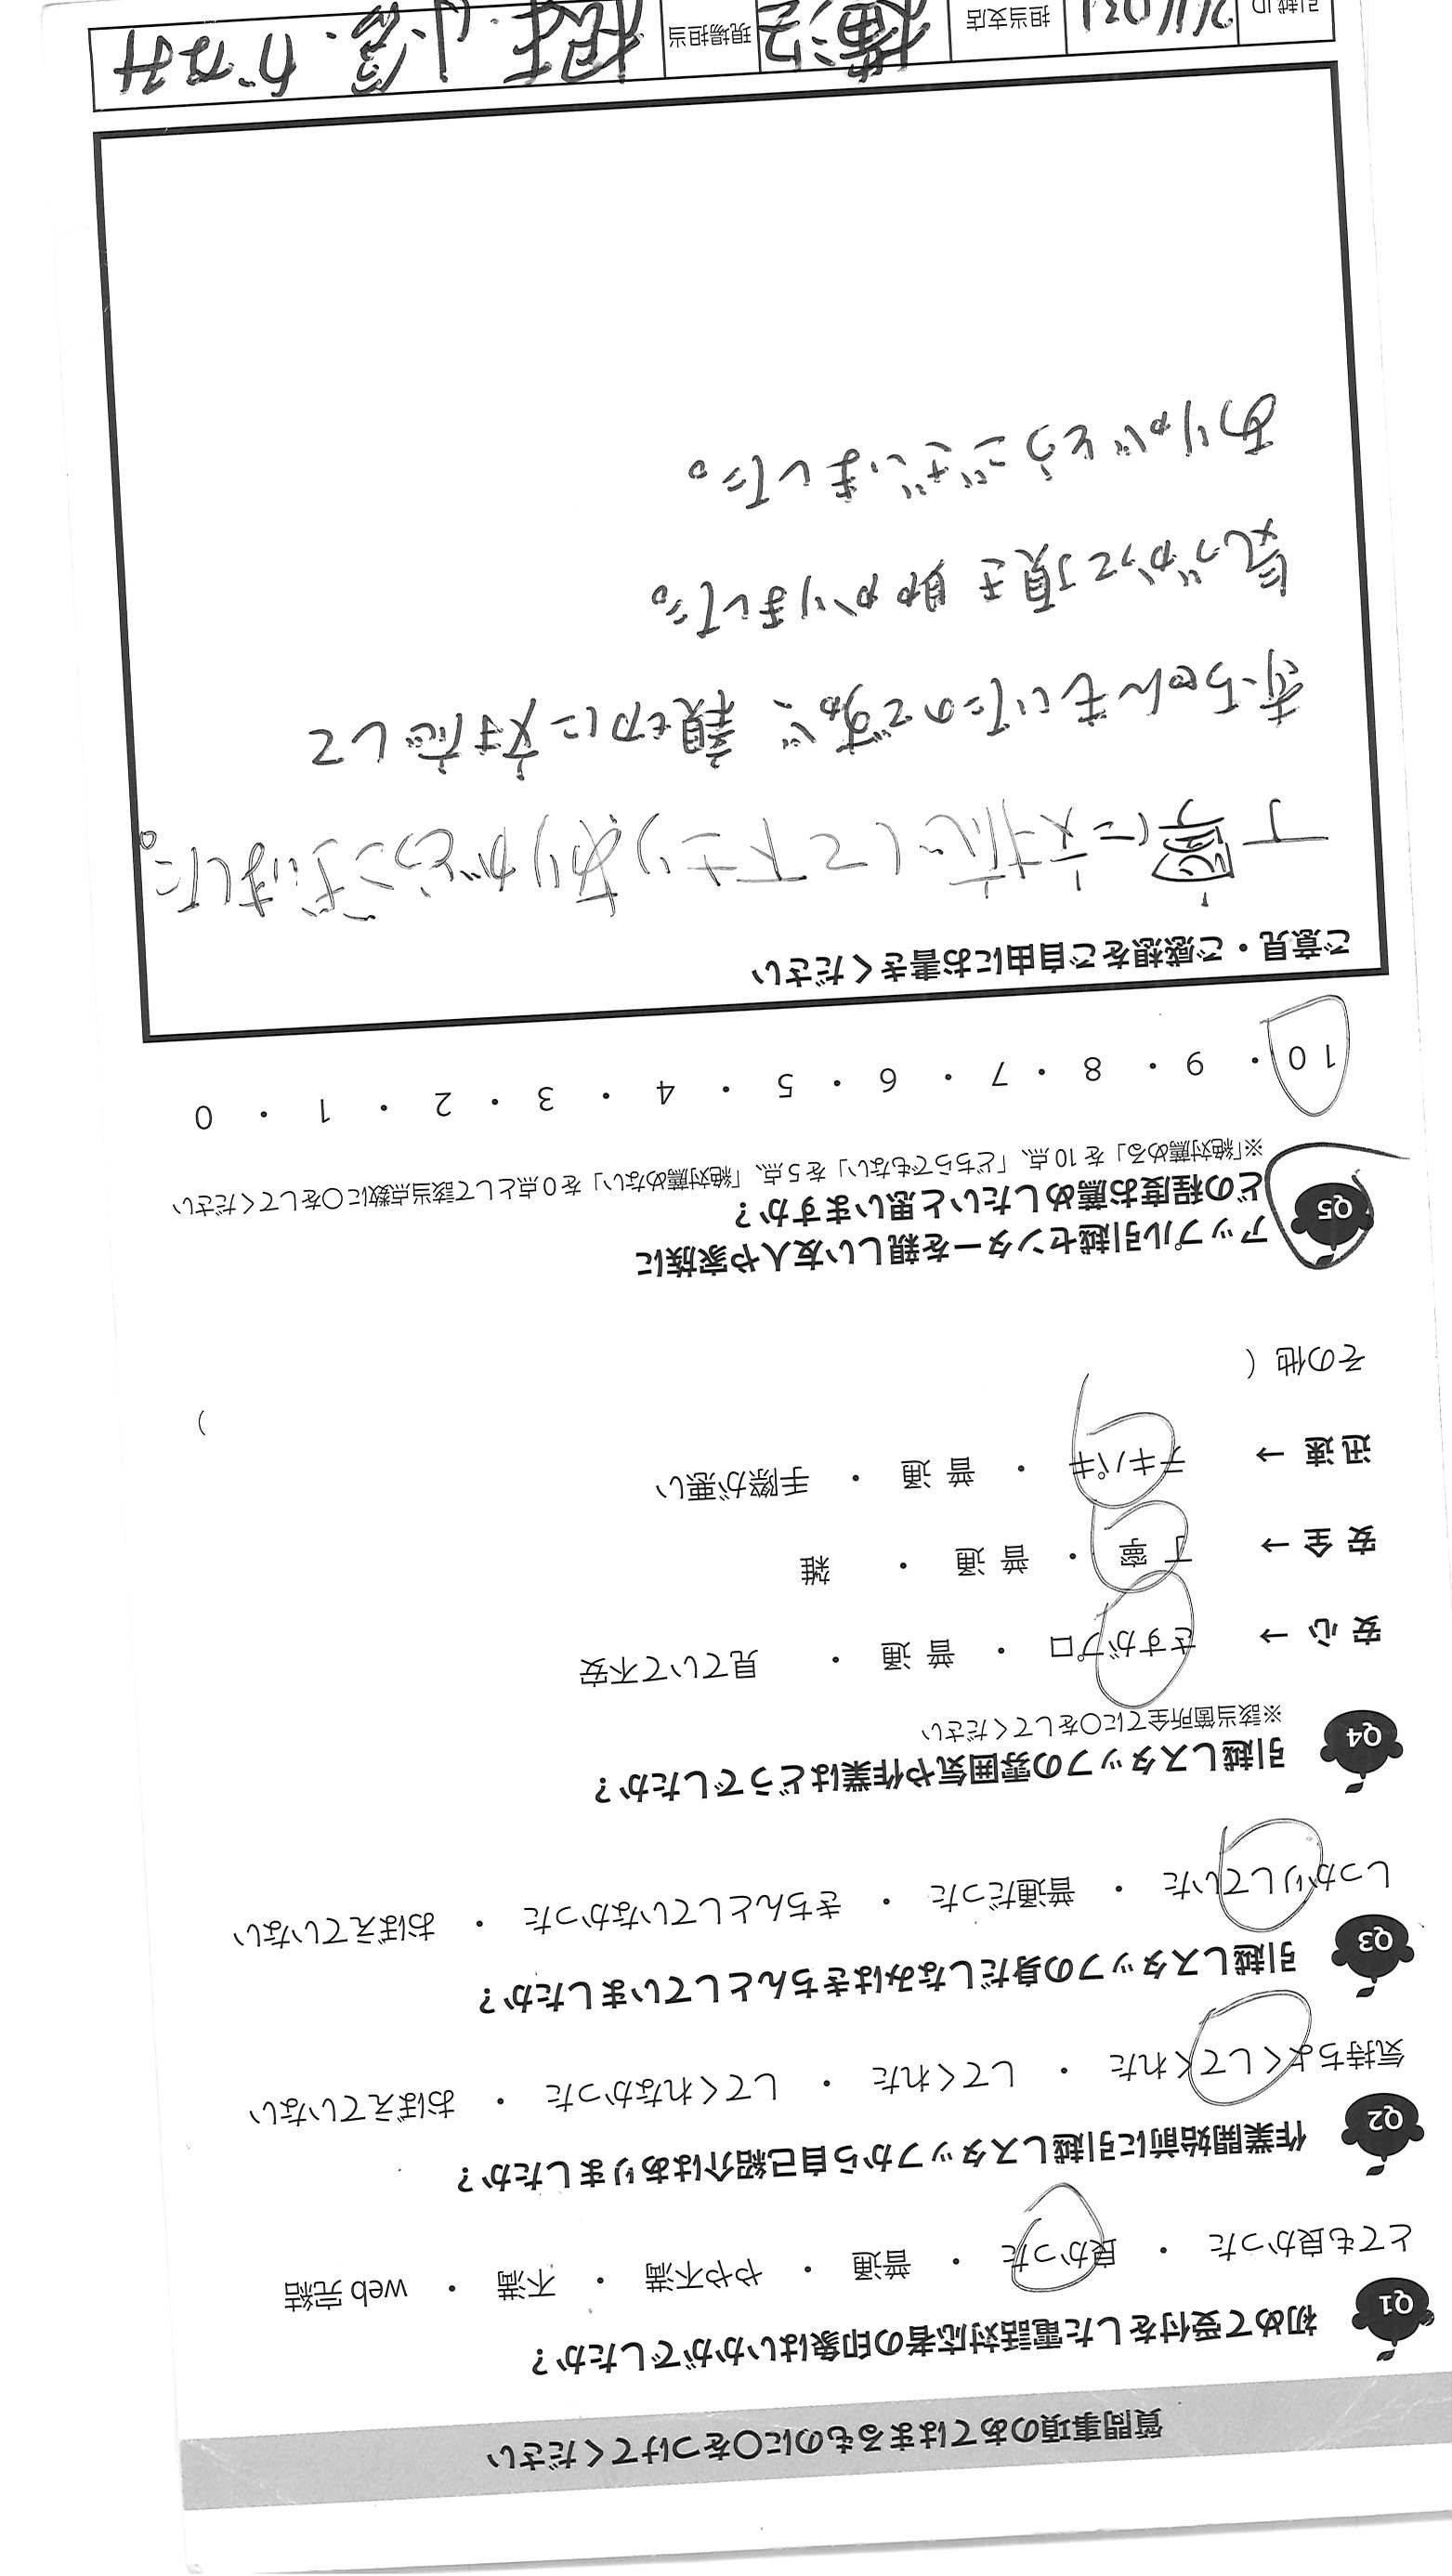 質問事項のあてはまるものに〇をつけてください
Q1 初めて受付をした電話対応者の印象はいかがでしたか？
とても良かった ・ 良かった ・ 普通 ・ やや不満 ・ 不満 ・ web 完結
Q2 作業開始前に引越しスタッフから自己紹介はありましたか？
気持ちよくしてくれた ・ してくれた ・ してくれなかった ・ おぼえていない
Q3 引越しスタッフの身だしなみはきちんとしていましたか？
しっかりしていた ・ 普通だった ・ きちんとしていなかった ・ おぼえていない
Q4 引越しスタッフの雰囲気や作業はどうでしたか？
※該当箇所全てに〇をしてください
安 心 → さすがプロ ・ 普 通 ・ 見ていて不安
安 全 → 丁 寧 ・ 普 通 ・ 雑
迅 速 → テキパキ ・ 普 通 ・ 手際が悪い
その他（ ）
Q5 アップル引越センターを親しい友人や家族に
どの程度お薦めしたいと思いますか？
※「絶対薦める」を 10 点、「どちらでもない」を 5 点、「絶対薦めない」を 0 点として該当点数に〇をしてください
10 ・ 9 ・ 8 ・ 7 ・ 6 ・ 5 ・ 4 ・ 3 ・ 2 ・ 1 ・ 0
ご意見・ご感想をご自由にお書きください
丁寧に対応して下さりありがとうございました。
赤ちゃんもいたのですが、親切に対応して
気づかって頂き助かりました。
ありがとうございました。
引越 ID 担当支店 横浜 現場担当